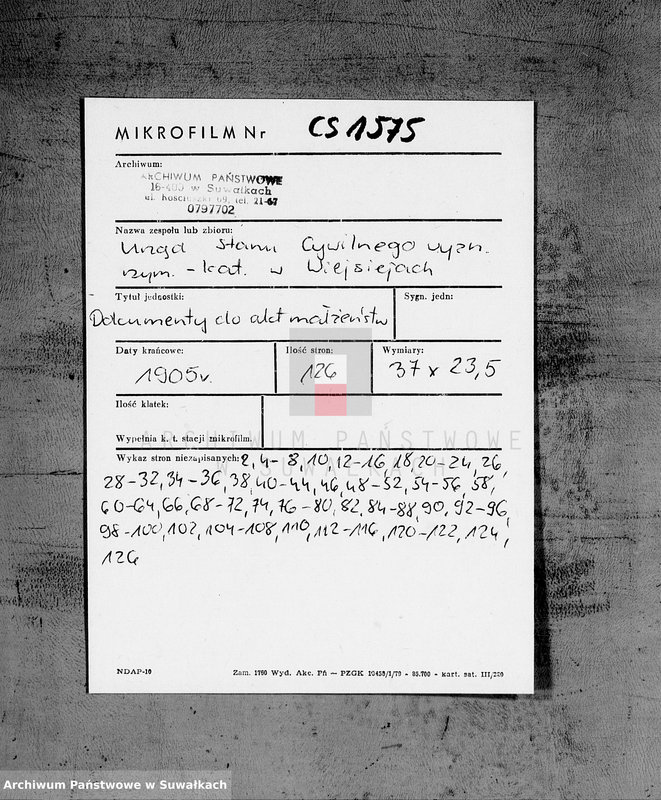 MIKROFILM Nr CS 1575
Archiwum:
ARCHIWUM PAŃSTWOWE
16-400 w Suwałkach
ul. Kościuszki 69, tel. 21-67
0797702
Nazwa zespołu lub zbioru:
Urząd Stanu Cywilnego wyzn.
rzym. - kat. w Wiejsiejach
Tytuł jednostki: Sygn. jedn:
Dokumenty do akt małżeństw
Daty krańcowe: Ilość stron: Wymiary:
1905 r. 126 37 x 23,5
Ilość klatek:
Wypełnia k. t. stacji mikrofilm.
ARCHIWUM PAŃSTWOWE
W SUWAŁKACH
Wykaz stron niezapisanych: 2, 4-8, 10, 12-16, 18, 20-24, 26,
28-32, 34-36, 38, 40-44, 46, 48-52, 54-56, 58,
60-64, 66, 68-72, 74, 76-80, 82, 84-88, 90, 92-96,
98-100, 102, 104-108, 110, 112-116, 120-122, 124,
126
NDAP-10 Zam. 1760 Wyd. Akc. Pń — PZGK 10459/1/79 - 85.700 - kart. sat. III/220
Archiwum Państwowe w Suwałkach